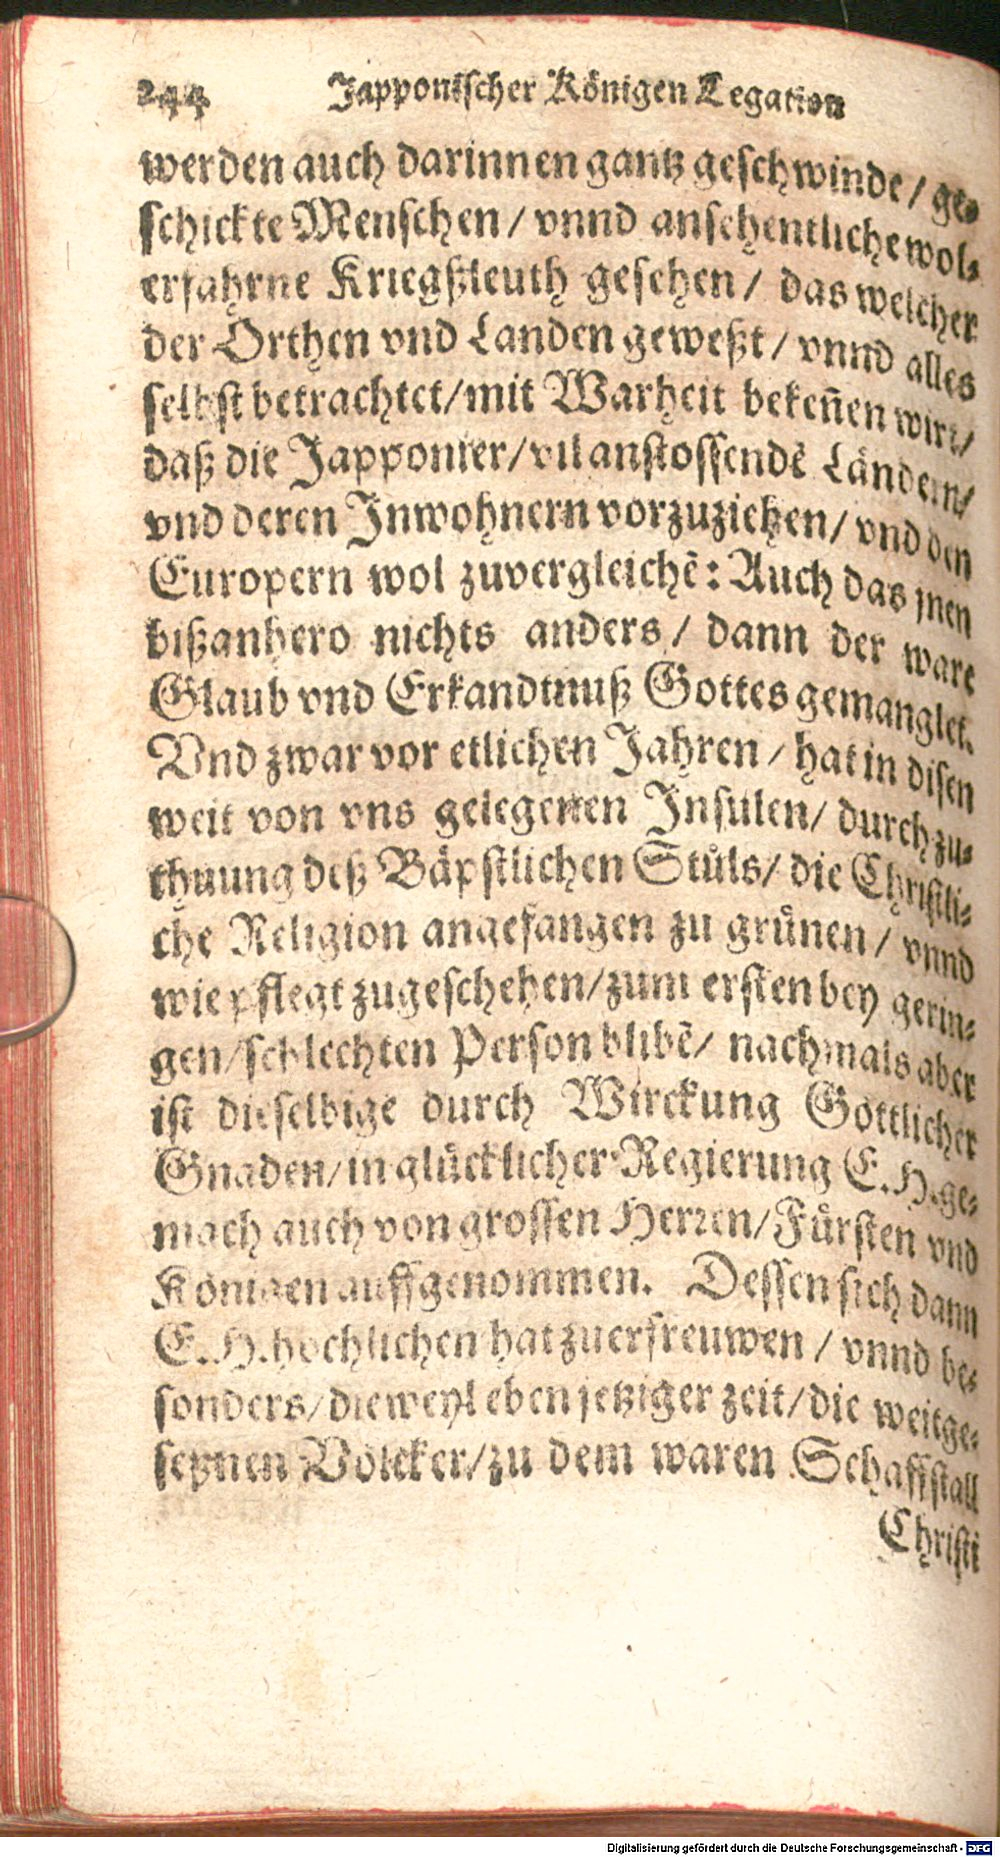 244 Japponischer Königen Legation
werden auch darinnen gantz geschwinde / ge-
schickte Menschen / vnnd ansehentliche wol-
erfahrne Kriegßleuth gesehen / das welcher
der Orthen vnd Landen geweßt / vnnd alles
selbst betrachtet / mit Warheit bekeñen wirt /
daß die Japponier / vil anstossendē Ländern /
vnd deren Inwohnern vorzuziehen / vnd den
Europern wol zuvergleichē : Auch das jnen
bißanhero nichts anders / dann der ware
Glaub vnd Erkandtnuß Gottes gemanglet.
Vnd zwar vor etlichen Jahren / hat in disen
weit von vns gelegenen Insulen / durch zu-
thuung deß Bäpstlichen Stůls / die Christli-
che Religion angefangen zu grünen / vnnd
wie pflegt zugeschehen / zum ersten bey gerin-
gen / schlechten Person blibē / nachmals aber
ist dieselbige durch Wirckung Göttlicher
Gnaden / in glücklicher Regierung E. H. ge-
mach auch von grossen Herren / Fürsten vnd
Königen auffgenommen. Dessen sich dann
E. H. höchlichen hat zuerfreuwen / vnnd be-
sonders / dieweyl eben jetziger zeit / die weitge-
seßnen Völcker / zu dem waren Schaffstall
Christi
Digitalisierung gefördert durch die Deutsche Forschungsgemeinschaft - DFG